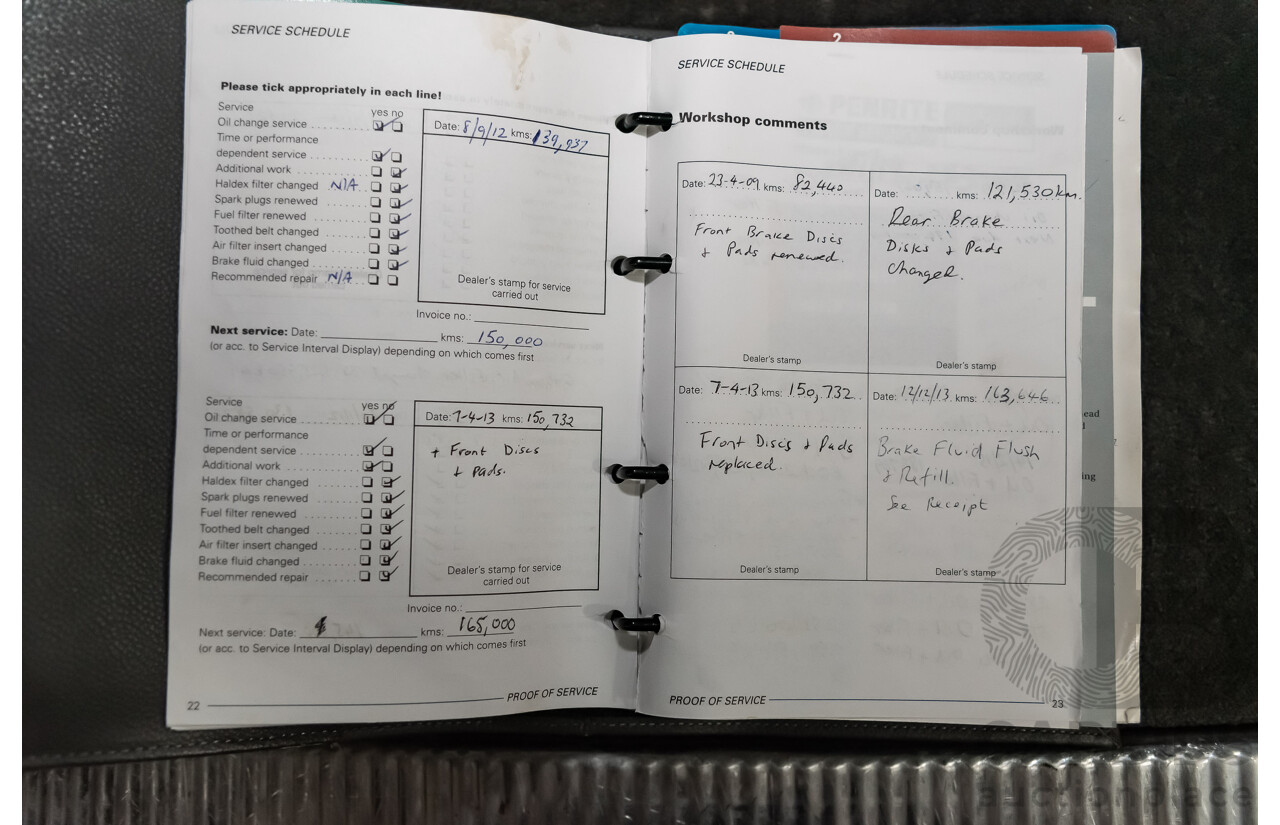 SERVICE SCHEDULE
Please tick appropriately in each line!
Service
yes no
Oil change service
Time or performance
dependent service
Additional work
Haldex filter changed N/A
Spark plugs renewed
Fuel filter renewed
Toothed belt changed
Air filter insert changed
Brake fluid changed
Recommended repair N/A
Date: 8/9/12 kms: 139,937
Dealer's stamp for service
carried out
Invoice no.:
Next service: Date: kms: 150,000
(or acc. to Service Interval Display) depending on which comes first
Service
yes no
Oil change service
Time or performance
dependent service
Additional work
Haldex filter changed
Spark plugs renewed
Fuel filter renewed
Toothed belt changed
Air filter insert changed
Brake fluid changed
Recommended repair
Date: 7-4-13 kms: 150,732
+ Front Discs
+ Pads.
Dealer's stamp for service
carried out
Invoice no.:
Next service: Date: kms: 165,000
(or acc. to Service Interval Display) depending on which comes first
22
PROOF OF SERVICE
2
SERVICE SCHEDULE
Workshop comments
Date: 23-4-09 kms: 82,440
Front Brake Discs
+ Pads renewed.
Dealer's stamp
Date: kms: 121,530km.
Rear Brake
Disks + Pads
Changed.
Dealer's stamp
Date: 7-4-13 kms: 150,732
Front Discs + Pads
replaced.
Dealer's stamp
Date: 12/12/13 kms: 163,646
Brake Fluid Flush
+ Refill.
See Receipt
Dealer's stamp
ead
ing
PROOF OF SERVICE
23
auctionplace